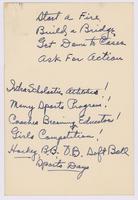 Start a Fire
Build a Bridge
Get Down to Cases
Ask For Action
Interscholastic Activities!
Many Sports Program!
Coaches Becoming Educators!
Girls Competition!
Hockey B.B. V.B. Soft Ball
Sports Days